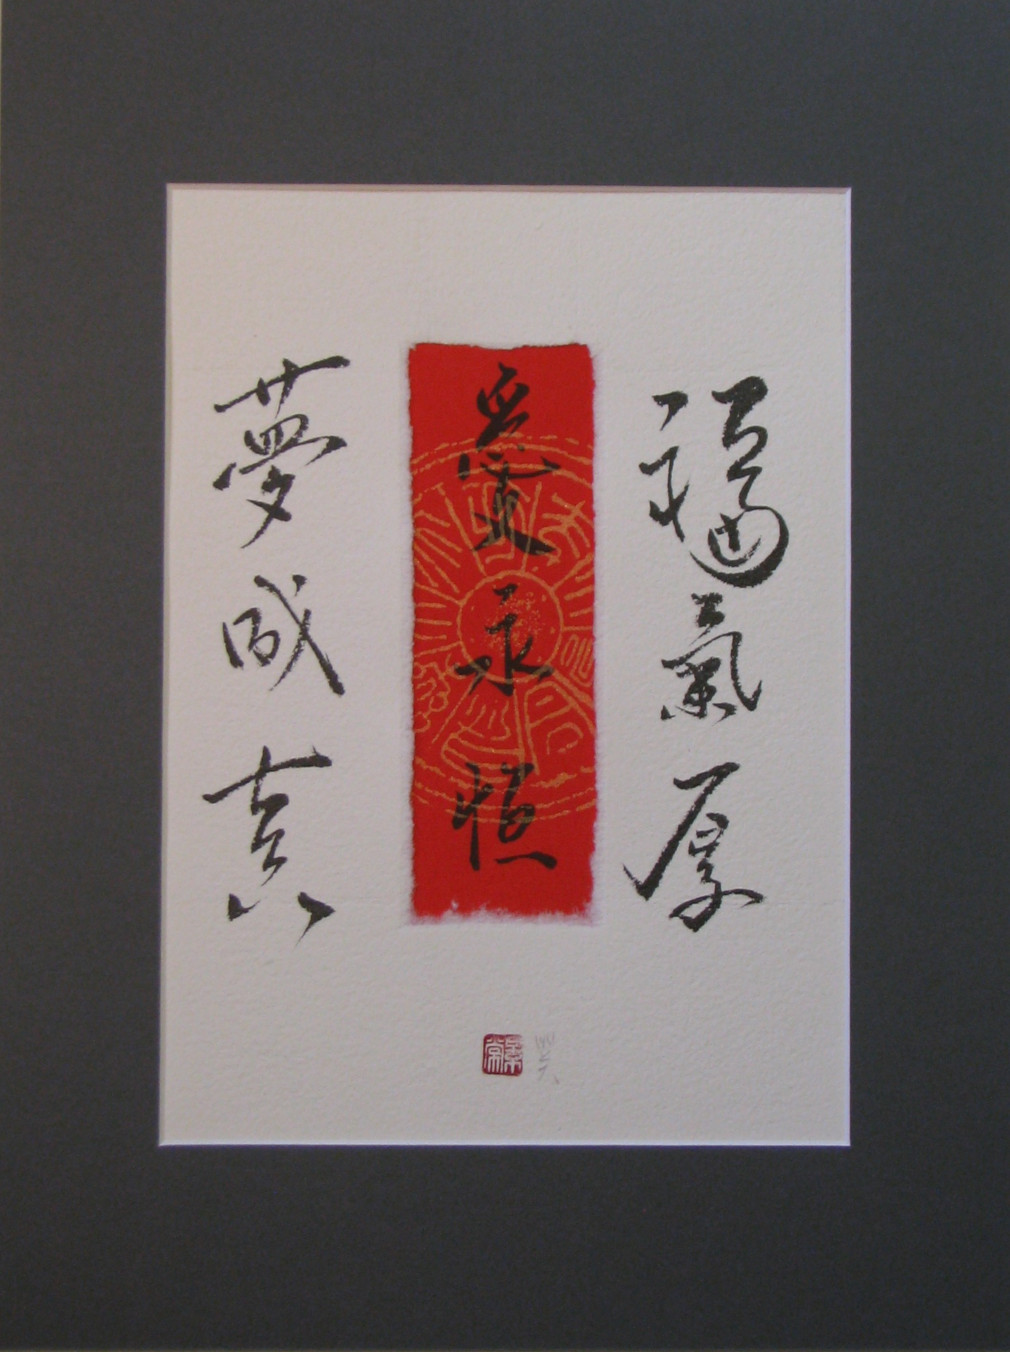 福氣厚
愛永恒
夢成真